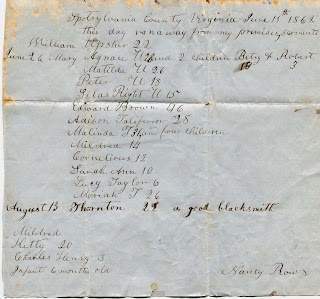 Spotsylvania County Virginia June 15th 1862
this day ranaway from my premises, servants
William Upsher 22
June 26 Mary Agness U 28 and 2 children Betsy & Robert
3
Matilda U 26
Peter U 13
Silas Right U 15
Edward Brown 46
Adison Taliferro 28
Malinda T 34 four children
Mildred 14
Cornelious 12
Sarah Ann 10
Lucy Taylor 6
Moriah T 26
August 13 Thornton 22 a good blacksmith
Mildred
Hetty 20
Charles Henry 3
Infant 6 months old
Nancy Row